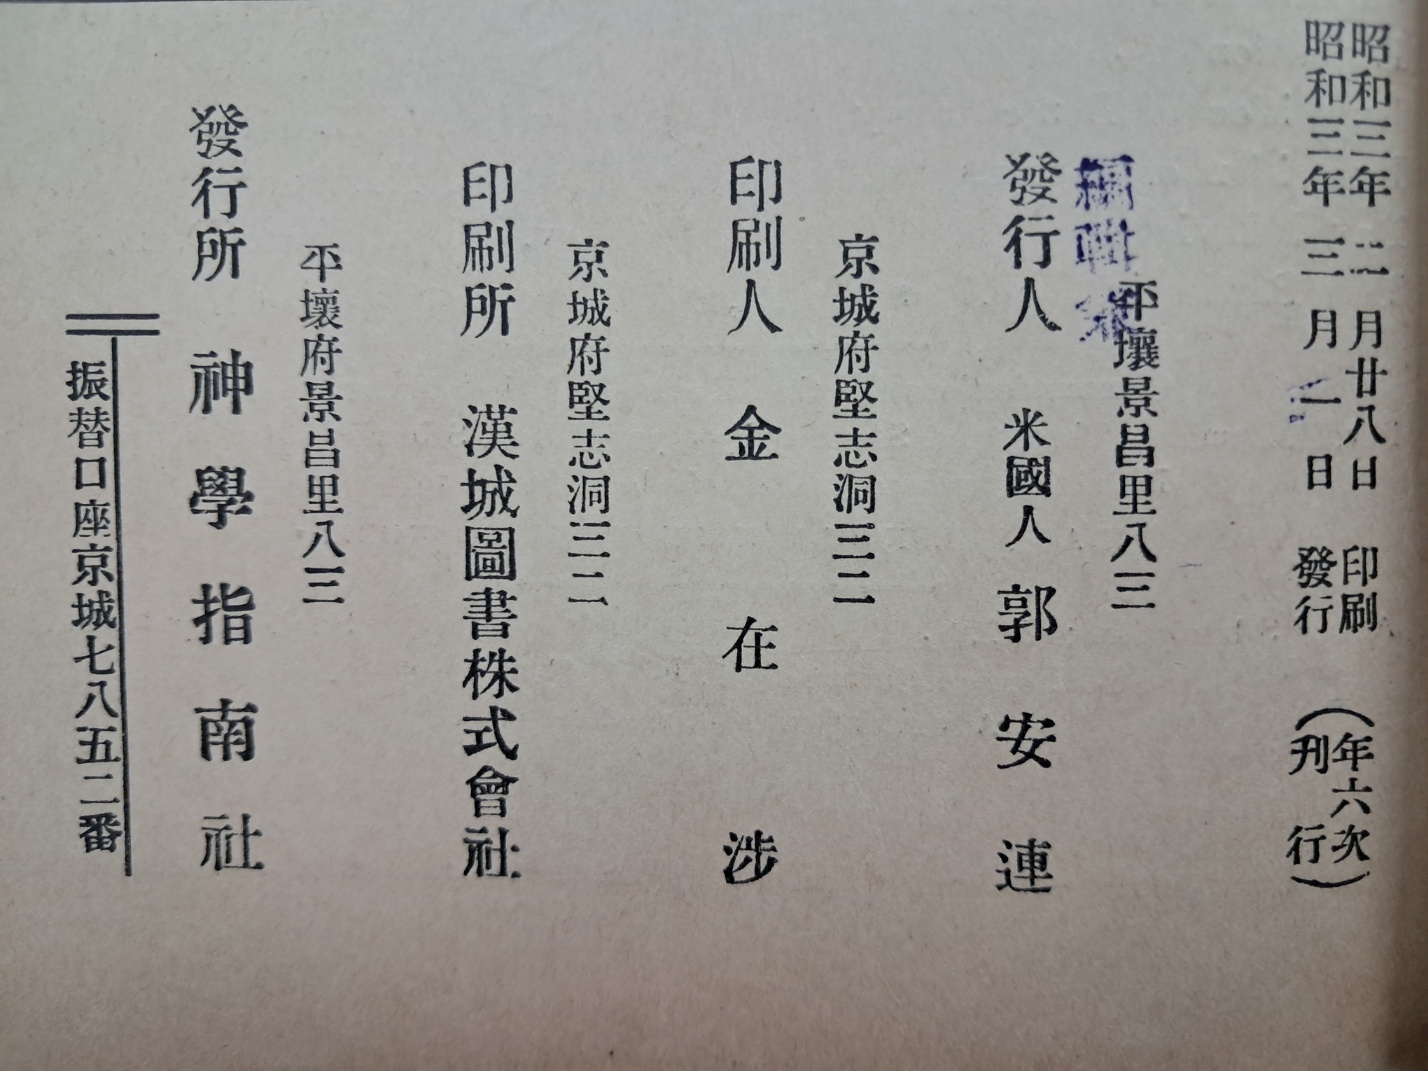 昭和三年 二月廿八日 印刷
昭和三年 三月一日 發行
(年六次刊行)
平壤景昌里八三
編輯兼
發行人 米國人 郭安連
京城府堅志洞三二
印刷人 金在涉
京城府堅志洞三二
印刷所 漢城圖書株式會社
平壤府景昌里八三
發行所 神學指南社
振替口座京城七八五二番